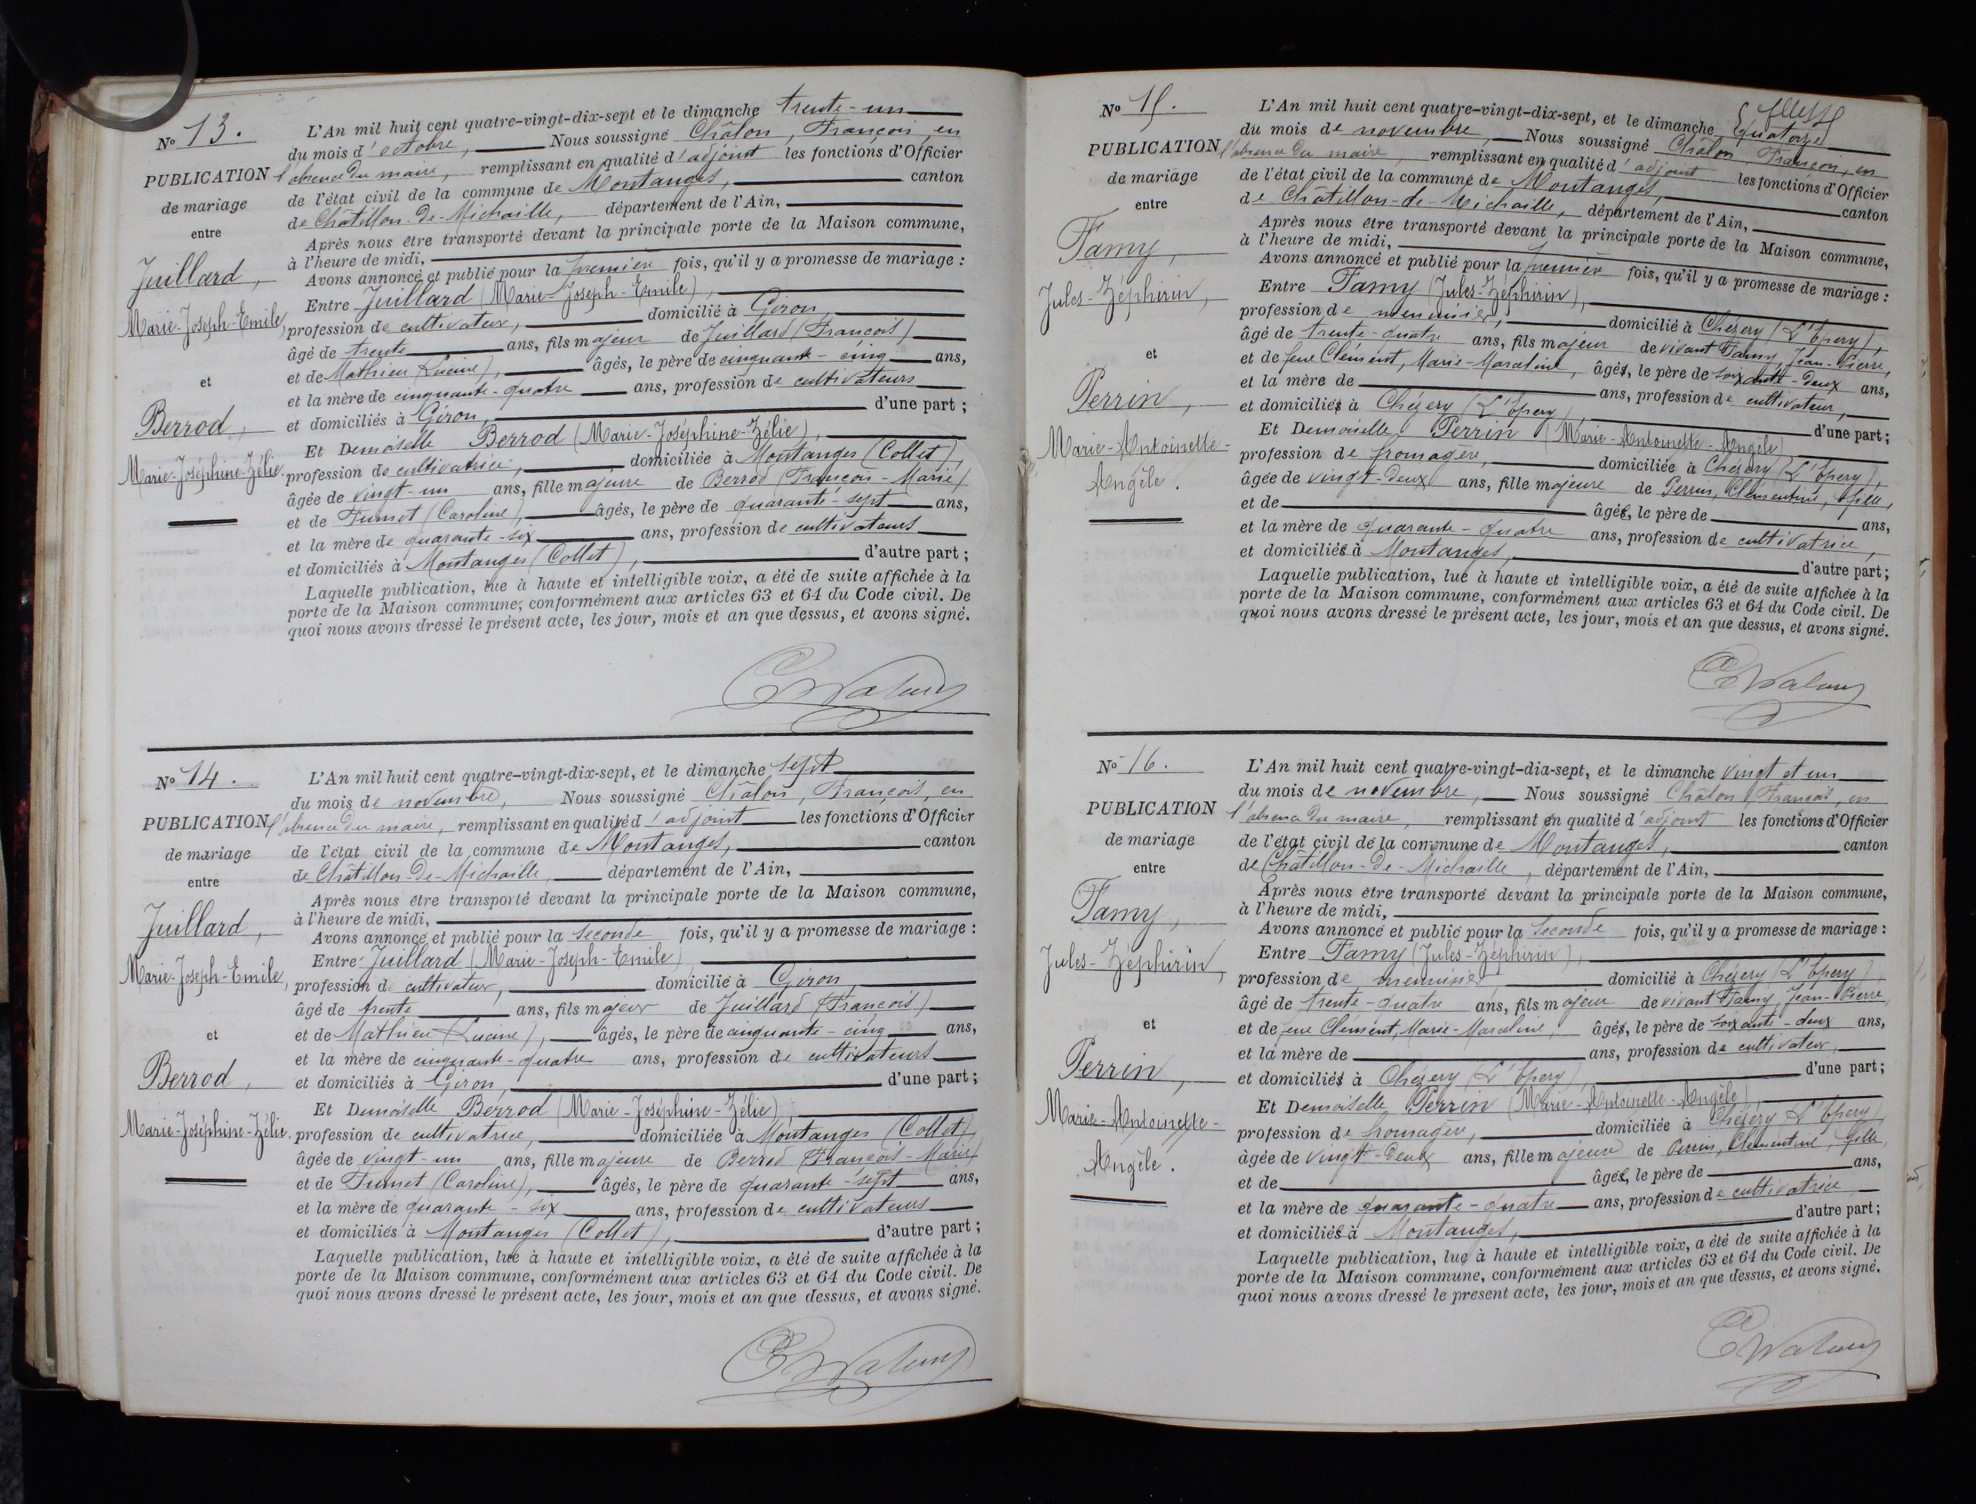 N° 13.
PUBLICATION
de mariage
entre
Juillard,
Marie-Joseph-Emile,
et
Berrod,
Marie-Joséphine-Zélie.
L'An mil huit cent quatre-vingt-dix-sept et le dimanche trente-un
du mois d'octobre, Nous soussigné Châlon, François, en
l'absence du maire, remplissant en qualité d'adjoint les fonctions d'Officier
de l'état civil de la commune de Montanges, canton
de Châtillon-de-Michaille, département de l'Ain,
Après nous être transporté devant la principale porte de la Maison commune,
à l'heure de midi,
Avons annoncé et publié pour la première fois, qu'il y a promesse de mariage :
Entre Juillard (Marie-Joseph-Emile),
profession de cultivateur, domicilié à Giron,
âgé de trente ans, fils majeur de Juillard (François)
et de Mathieu (Lucine), âgés, le père de cinquante-cinq ans,
et la mère de cinquante-quatre ans, profession de cultivateurs
et domiciliés à Giron, d'une part ;
Et Demoiselle Berrod (Marie-Joséphine-Zélie),
profession de cultivatrice, domiciliée à Montanges (Collet),
âgée de vingt-un ans, fille majeure de Berrod (François-Marie)
et de Fumet (Caroline), âgés, le père de quarante-sept ans,
et la mère de quarante-six ans, profession de cultivateurs
et domiciliés à Montanges (Collet), d'autre part ;
Laquelle publication, lue à haute et intelligible voix, a été de suite affichée à la
porte de la Maison commune, conformément aux articles 63 et 64 du Code civil. De
quoi nous avons dressé le présent acte, les jour, mois et an que dessus, et avons signé.
N° 14.
PUBLICATION
de mariage
entre
Juillard,
Marie-Joseph-Emile,
et
Berrod,
Marie-Joséphine-Zélie.
L'An mil huit cent quatre-vingt-dix-sept, et le dimanche sept
du mois de novembre, Nous soussigné Châlon, François, en
l'absence du maire, remplissant en qualité d'adjoint les fonctions d'Officier
de l'état civil de la commune de Montanges, canton
de Châtillon-de-Michaille, département de l'Ain,
Après nous être transporté devant la principale porte de la Maison commune,
à l'heure de midi,
Avons annoncé et publié pour la seconde fois, qu'il y a promesse de mariage :
Entre Juillard (Marie-Joseph-Emile)
profession de cultivateur, domicilié à Giron,
âgé de trente ans, fils majeur de Juillard (François)
et de Mathieu (Lucine), âgés, le père de cinquante-cinq ans,
et la mère de cinquante-quatre ans, profession de cultivateurs
et domiciliés à Giron, d'une part ;
Et Demoiselle Berrod (Marie-Joséphine-Zélie),
profession de cultivatrice, domiciliée à Montanges (Collet),
âgée de vingt-un ans, fille majeure de Berrod (François-Marie)
et de Fumet (Caroline), âgés, le père de quarante-sept ans,
et la mère de quarante-six ans, profession de cultivateurs
et domiciliés à Montanges (Collet), d'autre part ;
Laquelle publication, lue à haute et intelligible voix, a été de suite affichée à la
porte de la Maison commune, conformément aux articles 63 et 64 du Code civil. De
quoi nous avons dressé le présent acte, les jour, mois et an que dessus, et avons signé.
N° 15.
PUBLICATION
de mariage
entre
Famy,
Jules-Zéphirin,
et
Perrin,
Marie-Antoinette-
Angèle.
L'An mil huit cent quatre-vingt-dix-sept, et le dimanche quatorze
du mois de novembre, Nous soussigné Châlon, François, en
l'absence du maire, remplissant en qualité d'adjoint les fonctions d'Officier
de l'état civil de la commune de Montanges, canton
de Châtillon-de-Michaille, département de l'Ain,
Après nous être transporté devant la principale porte de la Maison commune,
à l'heure de midi,
Avons annoncé et publié pour la première fois, qu'il y a promesse de mariage :
Entre Famy (Jules-Zéphirin),
profession de menuisier, domicilié à Chézery (L'Epery),
âgé de trente-quatre ans, fils majeur de vivant Famy, Jean-Pierre,
et de feue Clément, Marie-Marceline, âgés, le père de soixante-deux ans,
et la mère de ans, profession de cultivateur,
et domiciliés à Chézery (L'Epery), d'une part ;
Et Demoiselle Perrin (Marie-Antoinette-Angèle)
profession de fromagère, domiciliée à Chézery (L'Epery),
âgée de vingt-deux ans, fille majeure de Perrin, Clémentine, fille,
et de âgés, le père de ans,
et la mère de quarante-quatre ans, profession de cultivatrice,
et domiciliés à Montanges, d'autre part ;
Laquelle publication, lue à haute et intelligible voix, a été de suite affichée à la
porte de la Maison commune, conformément aux articles 63 et 64 du Code civil. De
quoi nous avons dressé le présent acte, les jour, mois et an que dessus, et avons signé.
N° 16.
PUBLICATION
de mariage
entre
Famy,
Jules-Zéphirin,
et
Perrin,
Marie-Antoinette-
Angèle.
L'An mil huit cent quatre-vingt-dia-sept, et le dimanche vingt et un
du mois de novembre, Nous soussigné Châlon, François, en
l'absence du maire, remplissant en qualité d'adjoint les fonctions d'Officier
de l'état civil de la commune de Montanges, canton
de Châtillon-de-Michaille, département de l'Ain,
Après nous être transporté devant la principale porte de la Maison commune,
à l'heure de midi,
Avons annoncé et publié pour la seconde fois, qu'il y a promesse de mariage :
Entre Famy (Jules-Zéphirin),
profession de menuisier domicilié à Chézery (L'Epery),
âgé de trente-quatre ans, fils majeur de vivant Famy, Jean-Pierre
et de feue Clément, Marie-Marceline, âgés, le père de soixante-deux ans,
et la mère de ans, profession de cultivateur,
et domiciliés à Chézery (L'Epery), d'une part ;
Et Demoiselle Perrin (Marie-Antoinette-Angèle)
profession de fromagère, domiciliée à Chézery (L'Epery)
âgée de vingt-deux ans, fille majeure de Perrin, Clémentine, fille,
et de âgés, le père de ans,
et la mère de quarante-quatre ans, profession de cultivatrice
et domiciliés à Montanges, d'autre part ;
Laquelle publication, lue à haute et intelligible voix, a été de suite affichée à la
porte de la Maison commune, conformément aux articles 63 et 64 du Code civil. De
quoi nous avons dressé le présent acte, les jour, mois et an que dessus, et avons signé.